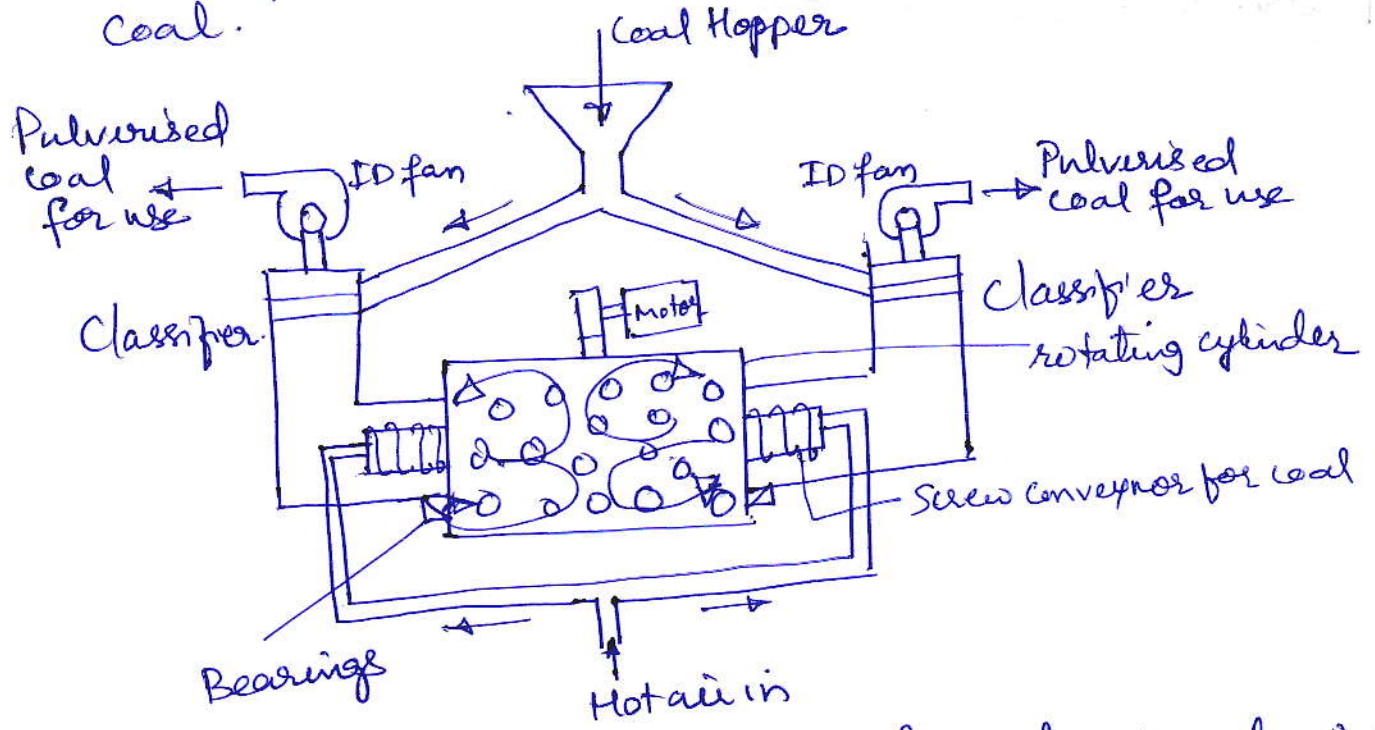 coal.
Coal Hopper
Pulverised
coal
for use
ID fan
ID fan
Pulverised
coal for use
Classifier
Motor
Classifier
rotating cylinder
Screw conveynor for coal
Bearings
Hot air in